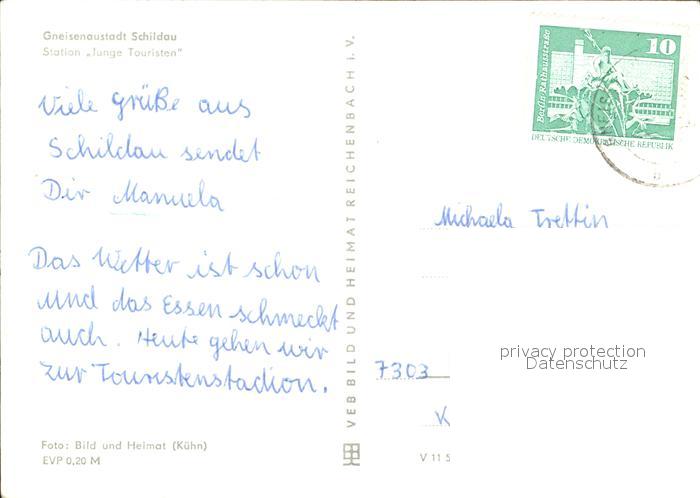 Gneisenaustadt Schildau
Station „Junge Touristen"
Viele Grüße aus
Schildau sendet
Dir Manuela
Das Wetter ist schon
und das Essen schmeckt
auch. Heute gehen wir
zur Touristenstadion.
Foto: Bild und Heimat (Kühn)
EVP 0,20 M
VEB BILD UND HEIMAT REICHENBACH i. V.
Berlin, Rathausstraße
10
DEUTSCHE DEMOKRATISCHE REPUBLIK
Michaela Trettin
privacy protection
Datenschutz
7303
K
V 11 5